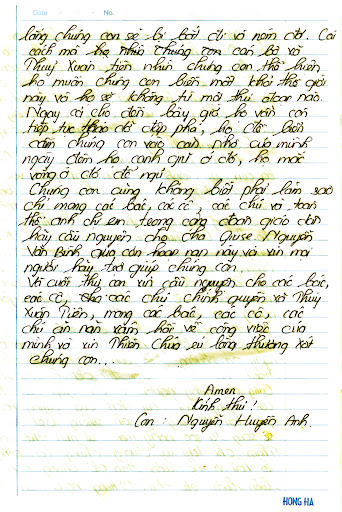 Date No.
rằng chúng con sẽ bị bắt đi vô nơi đó. Cái
cách mà họ nhìn chúng con cán bộ xã
Thuỵ Xuân Tiên nhìn chúng con thể hiện
họ muốn chúng con biến mất khỏi thế giới
này và họ sẽ không từ mọi thủ đoạn nào.
Ngay cả cho đến bây giờ họ vẫn còn
tiếp tục tháo dỡ đập phá, họ đã bao
cấm chúng con vào căn nhà của mình
ngày đêm họ canh giữ ở đó, họ mắc
võng ở đó để ngủ
Chúng con cũng không biết phải làm sao
chỉ mong các bác, các cô, các chú và toàn
thể anh chị em trong cộng đoàn giáo dân
hãy cầu nguyện cho cha Giuse Nguyễn
Văn Bình qua cơn hoạn nạn này và xin mọi
người hãy trợ giúp chúng con.
Và cuối thư con xin cầu nguyện cho các bác,
các cô, các chú chính quyền xã Thuỵ
Xuân Tiên, mong các bác, các cô, các
chú ăn năn sám hối về công việc của
mình và xin Thiên Chúa rủ lòng thương xót
chúng con...
Amen
Kính thư!
Con: Nguyễn Huyền Anh.
HONG HA